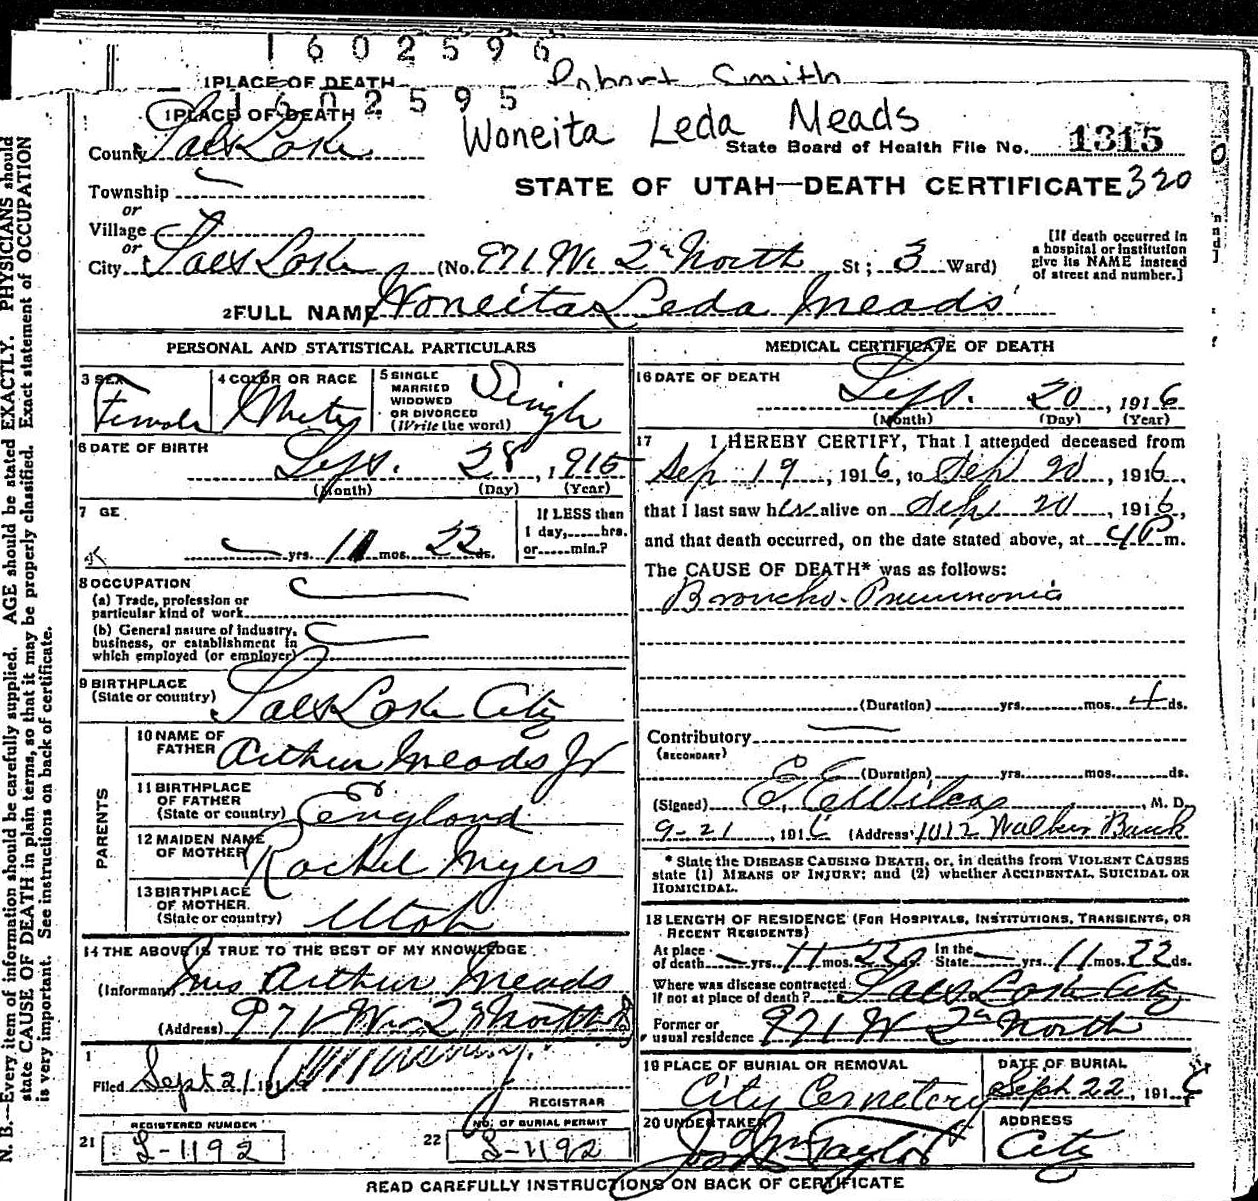 1602596
1PLACE OF DEATH
Robert Smith
1602595
1PLACE OF DEATH
Woneita Leda Meads
County Salt Lake
State Board of Health File No. 1315
Township
STATE OF UTAH—DEATH CERTIFICATE 320
or
Village
or
City Salt Lake (No. 971 W. 2nd North St; 3 Ward)
[If death occurred in
a hospital or institution
give its NAME instead
of street and number.]
2FULL NAME Woneita Leda Meads
PERSONAL AND STATISTICAL PARTICULARS
3 SEX Female
4 COLOR OR RACE White
5 SINGLE
MARRIED
WIDOWED
OR DIVORCED
(Write the word) Single
6 DATE OF BIRTH Sept. 28, 1915
(Month) (Day) (Year)
7 GE
yrs. 11 mos. 22 ds.
If LESS than
1 day,......hrs.
or......min.?
8 OCCUPATION
(a) Trade, profession or
particular kind of work
(b) General nature of industry,
business, or establishment in
which employed (or employer)
9 BIRTHPLACE
(State or country) Salt Lake City
PARENTS
10 NAME OF
FATHER Arthur Meads Jr
11 BIRTHPLACE
OF FATHER
(State or country) England
12 MAIDEN NAME
OF MOTHER Rachel Myers
13 BIRTHPLACE
OF MOTHER.
(State or country) Utah
14 THE ABOVE IS TRUE TO THE BEST OF MY KNOWLEDGE
(Informant Mrs Arthur Meads
(Address) 971 W. 2nd North
Filed Sept 21 191
REGISTRAR
REGISTERED NUMBER
21 S-1192
NO. OF BURIAL PERMIT
22 S-1192
MEDICAL CERTIFICATE OF DEATH
16 DATE OF DEATH
Sept. 20, 1916
(Month) (Day) (Year)
17 I HEREBY CERTIFY, That I attended deceased from
Sep 19, 1916, to Sep 20, 1916,
that I last saw her alive on Sep 20, 1916,
and that death occurred, on the date stated above, at 4 P m.
The CAUSE OF DEATH* was as follows:
Broncho-Pneumonia
(Duration) yrs. mos. 4 ds.
Contributory
(SECONDARY)
(Duration) yrs. mos. ds.
(Signed) E. E. Wilcox, M. D.
9-21, 1916 (Address 1012 Walker Bank
* State the DISEASE CAUSING DEATH, or, in deaths from VIOLENT CAUSES
state (1) MEANS OF INJURY; and (2) whether ACCIDENTAL, SUICIDAL OR
HOMICIDAL.
18 LENGTH OF RESIDENCE (FOR HOSPITALS, INSTITUTIONS, TRANSIENTS, OR
RECENT RESIDENTS)
At place
of death yrs. 11 mos. 22 ds.
In the
State yrs. 11 mos. 22 ds.
Where was disease contracted
if not at place of death? Salt Lake City
Former or
usual residence 971 W 2nd North
19 PLACE OF BURIAL OR REMOVAL
City Cemetery
DATE OF BURIAL
Sept 22, 1916
20 UNDERTAKER
Jos Wm Taylor
ADDRESS
City
READ CAREFULLY INSTRUCTIONS ON BACK OF CERTIFICATE
N. B.—Every item of information should be carefully supplied. AGE should be stated EXACTLY. PHYSICIANS should
state CAUSE OF DEATH in plain terms, so that it may be properly classified. Exact statement of OCCUPATION
is very important. See instructions on back of certificate.